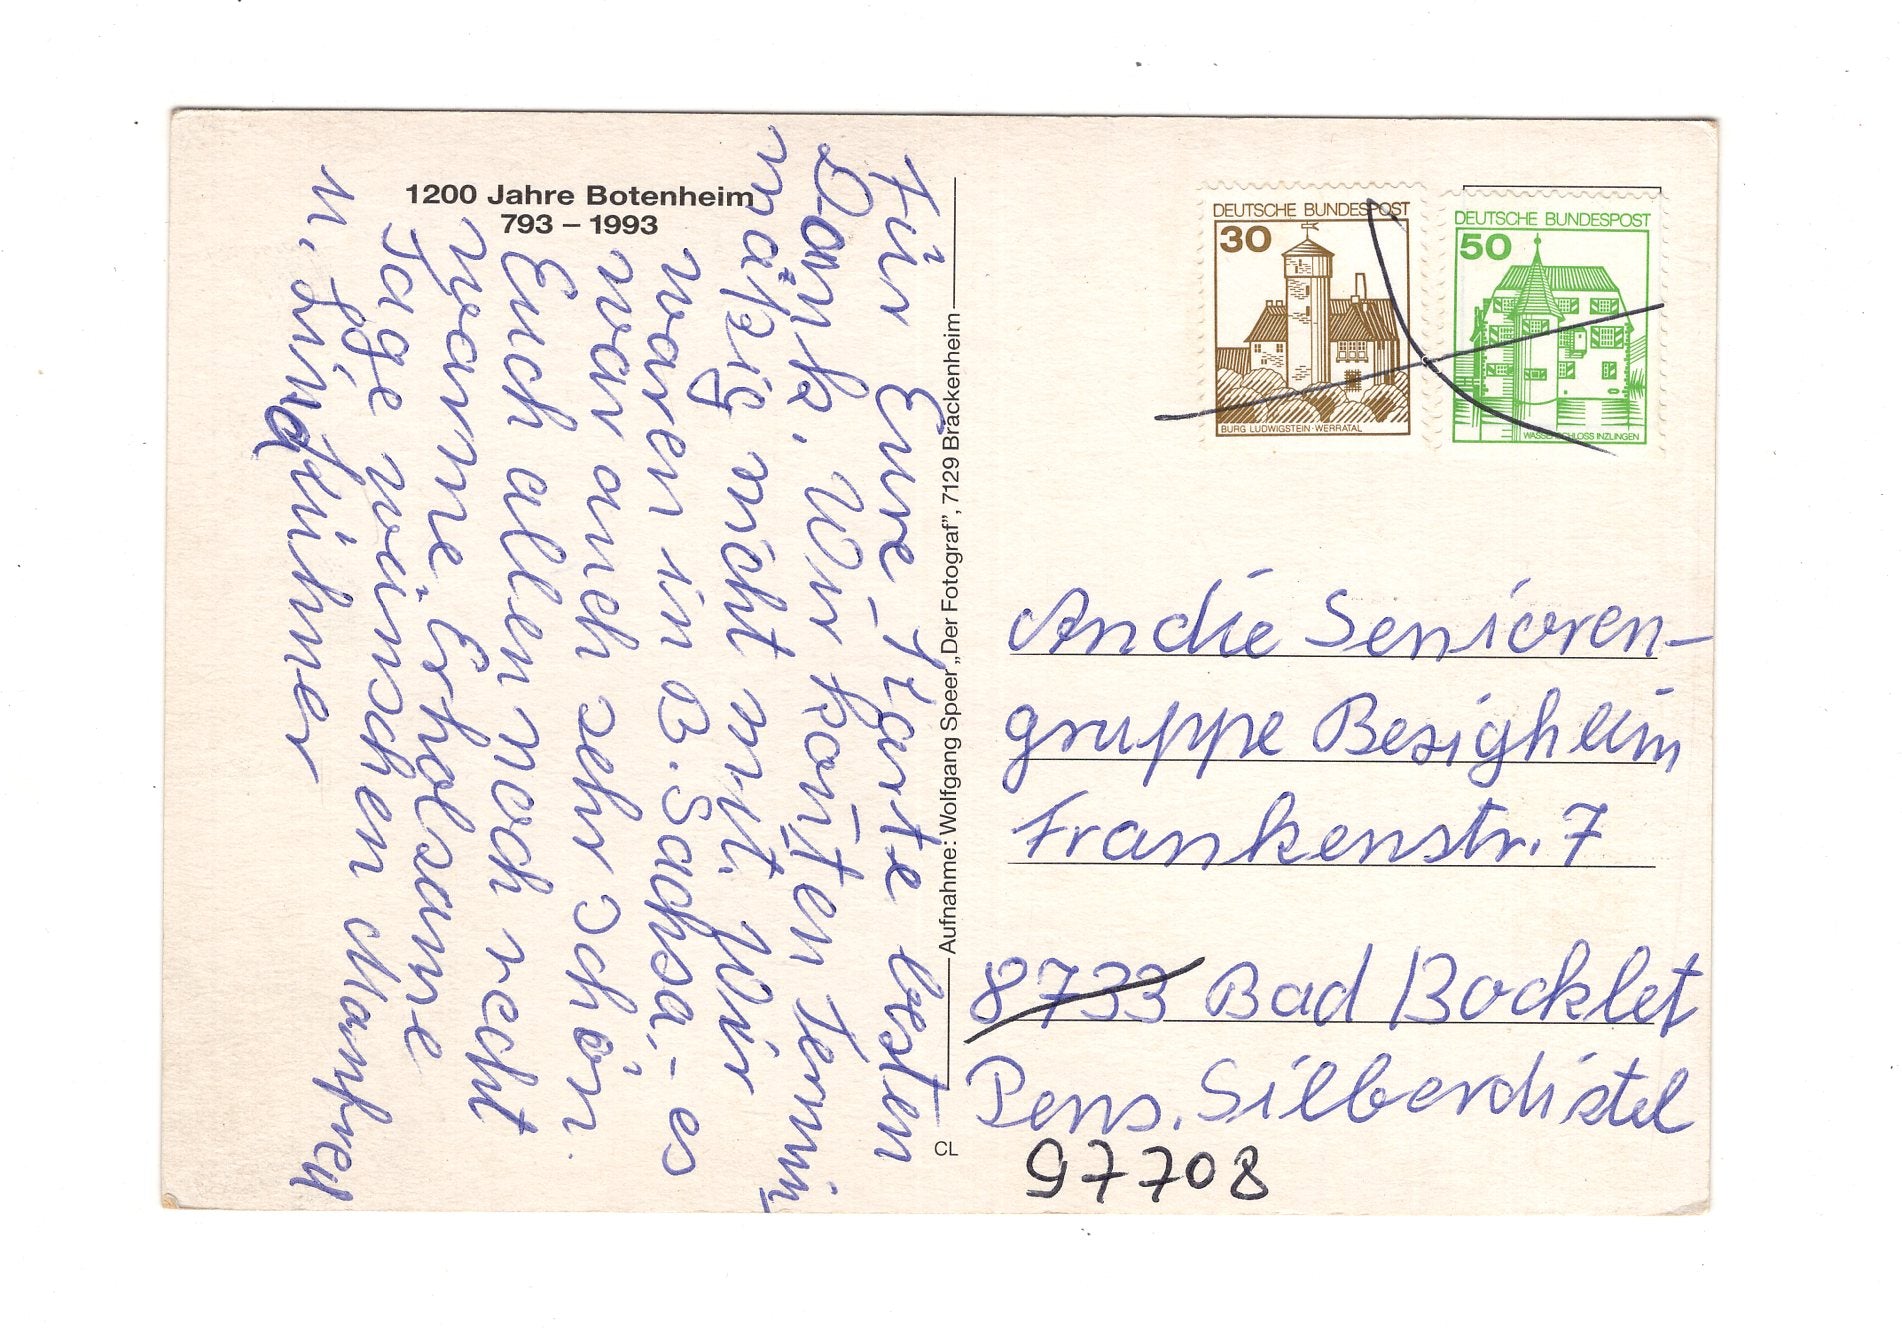 1200 Jahre Botenheim
793 – 1993
Für Eure Karte besten
Dank, Wir konnten termin
mäßig nicht mit. Wir
waren in B. Sachsa, - es
war auch sehr schön.
Euch allen noch recht
warme, Erholsame
Tage wünschen Manfred
u.
Aufnahme: Wolfgang Speer „Der Fotograf”, 7129 Brackenheim
CL
DEUTSCHE BUNDESPOST
30
BURG LUDWIGSTEIN-WERRATAL
DEUTSCHE BUNDESPOST
50
WASSERSCHLOSS INZLINGEN
An die Senioren-
gruppe Besigheim
Frankenstr. 7
8733 Bad Bocklet
Pens. Silberdistel
97708